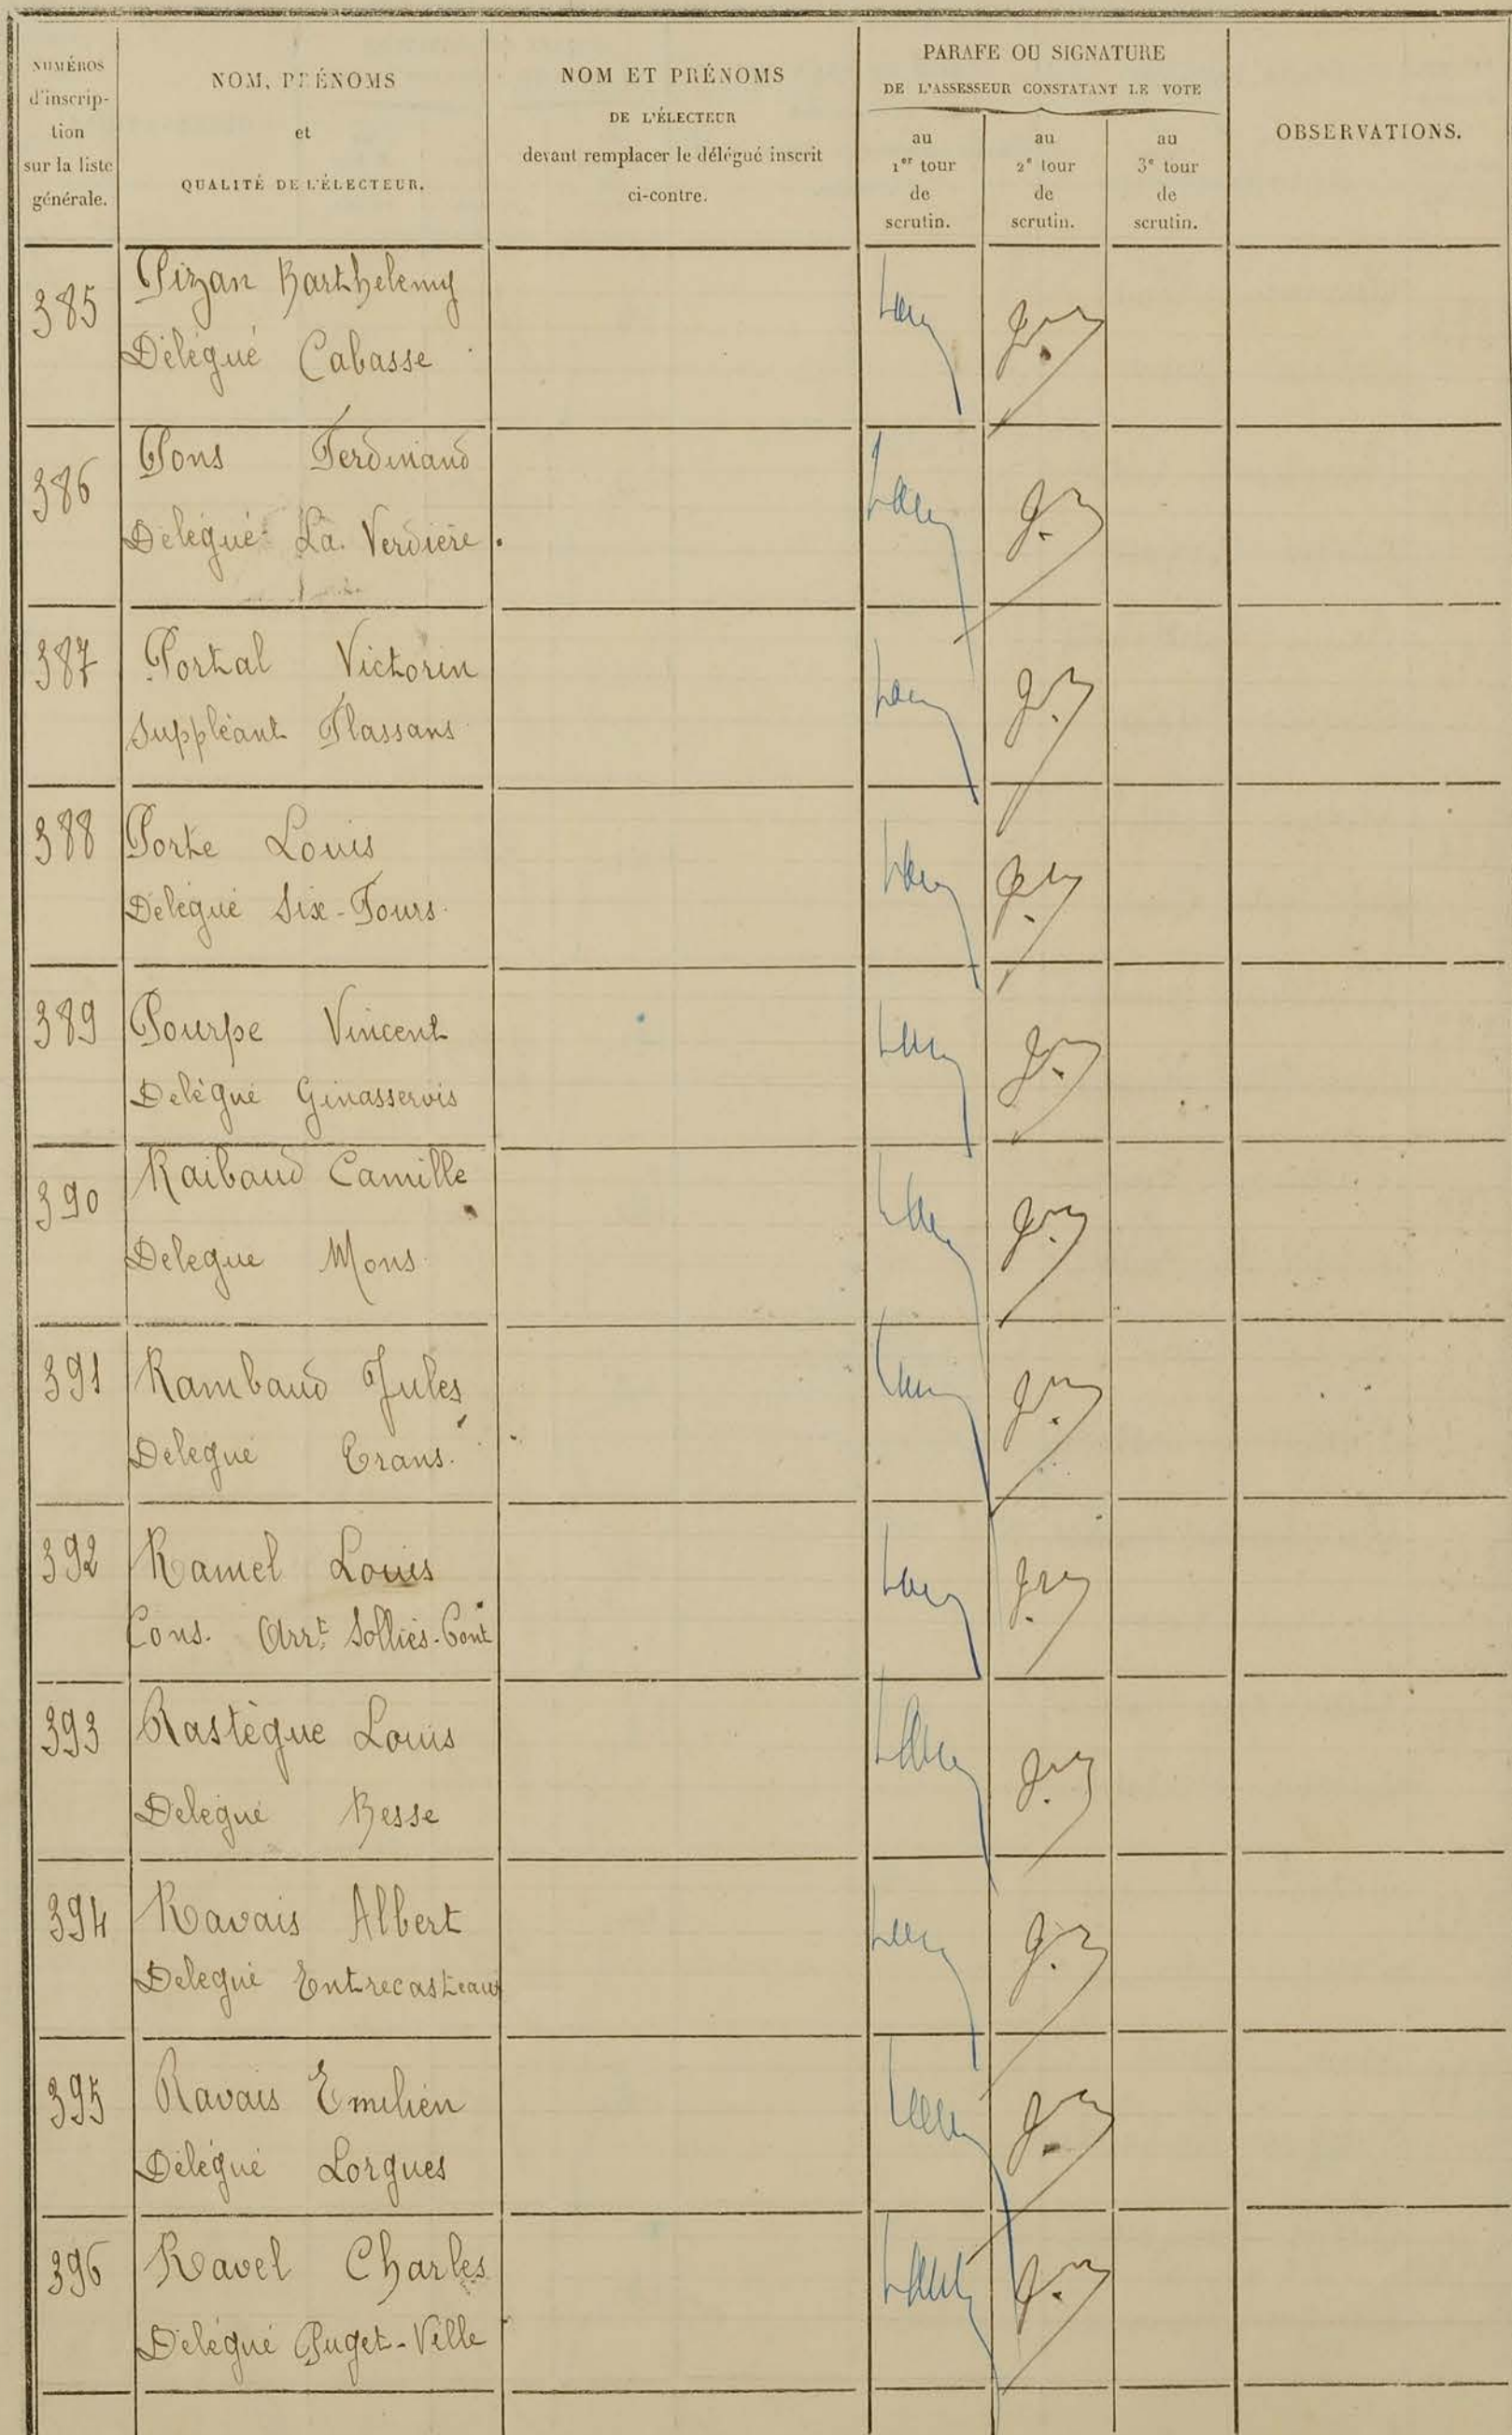 NUMÉROS
d'inscrip-
tion
sur la liste
générale.
NOM, PRÉNOMS
et
QUALITÉ DE L'ÉLECTEUR.
NOM ET PRÉNOMS
DE L'ÉLECTEUR
devant remplacer le délégué inscrit
ci-contre.
PARAFE OU SIGNATURE
DE L'ASSESSEUR CONSTATANT LE VOTE
au
1er tour
de
scrutin.
au
2e tour
de
scrutin.
au
3e tour
de
scrutin.
OBSERVATIONS.
385 Pizan Barthelemy
Délégué Cabasse
386 Pons Ferdinand
Délégué La Verdière
387 Portal Victorin
Suppléant Flassans
388 Porte Louis
Délégué Six-Fours
389 Pourpe Vincent
Délégué Ginasservis
390 Raibaud Camille
Délégue Mons
391 Rambaud Jules
Délégué Trans.
392 Ramel Louis
Cons. Arrt. Solliès-Pont
393 Rastègue Louis
Délégué Besse
394 Ravais Albert
Délégué Entrecasteaux
395 Ravais Emilien
Délégué Lorgues
396 Ravel Charles
Délégué Puget-Ville